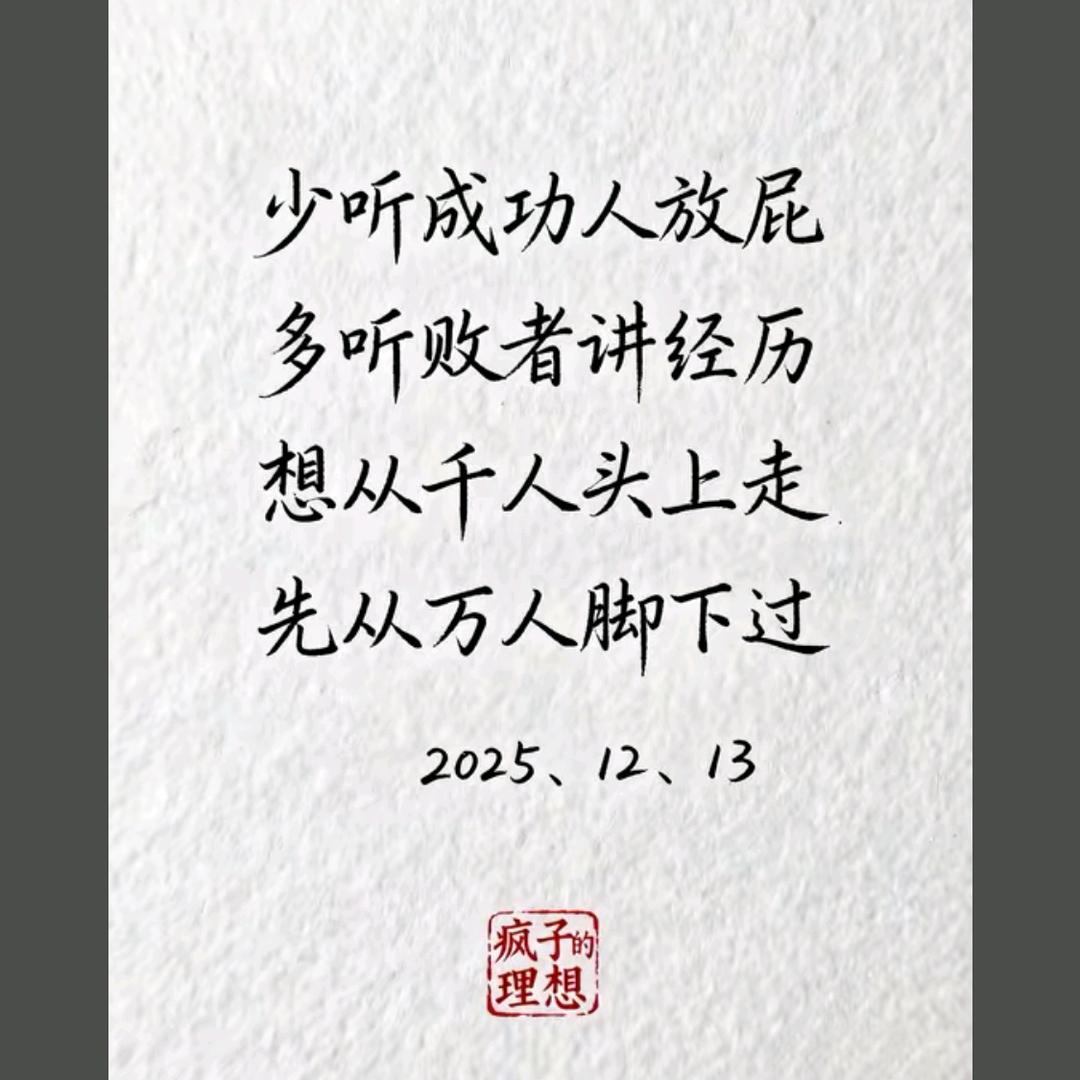 少听成功人放屁
多听败者讲经历
想从千人头上走
先从万人脚下过
2025、12、13
疯子的
理想